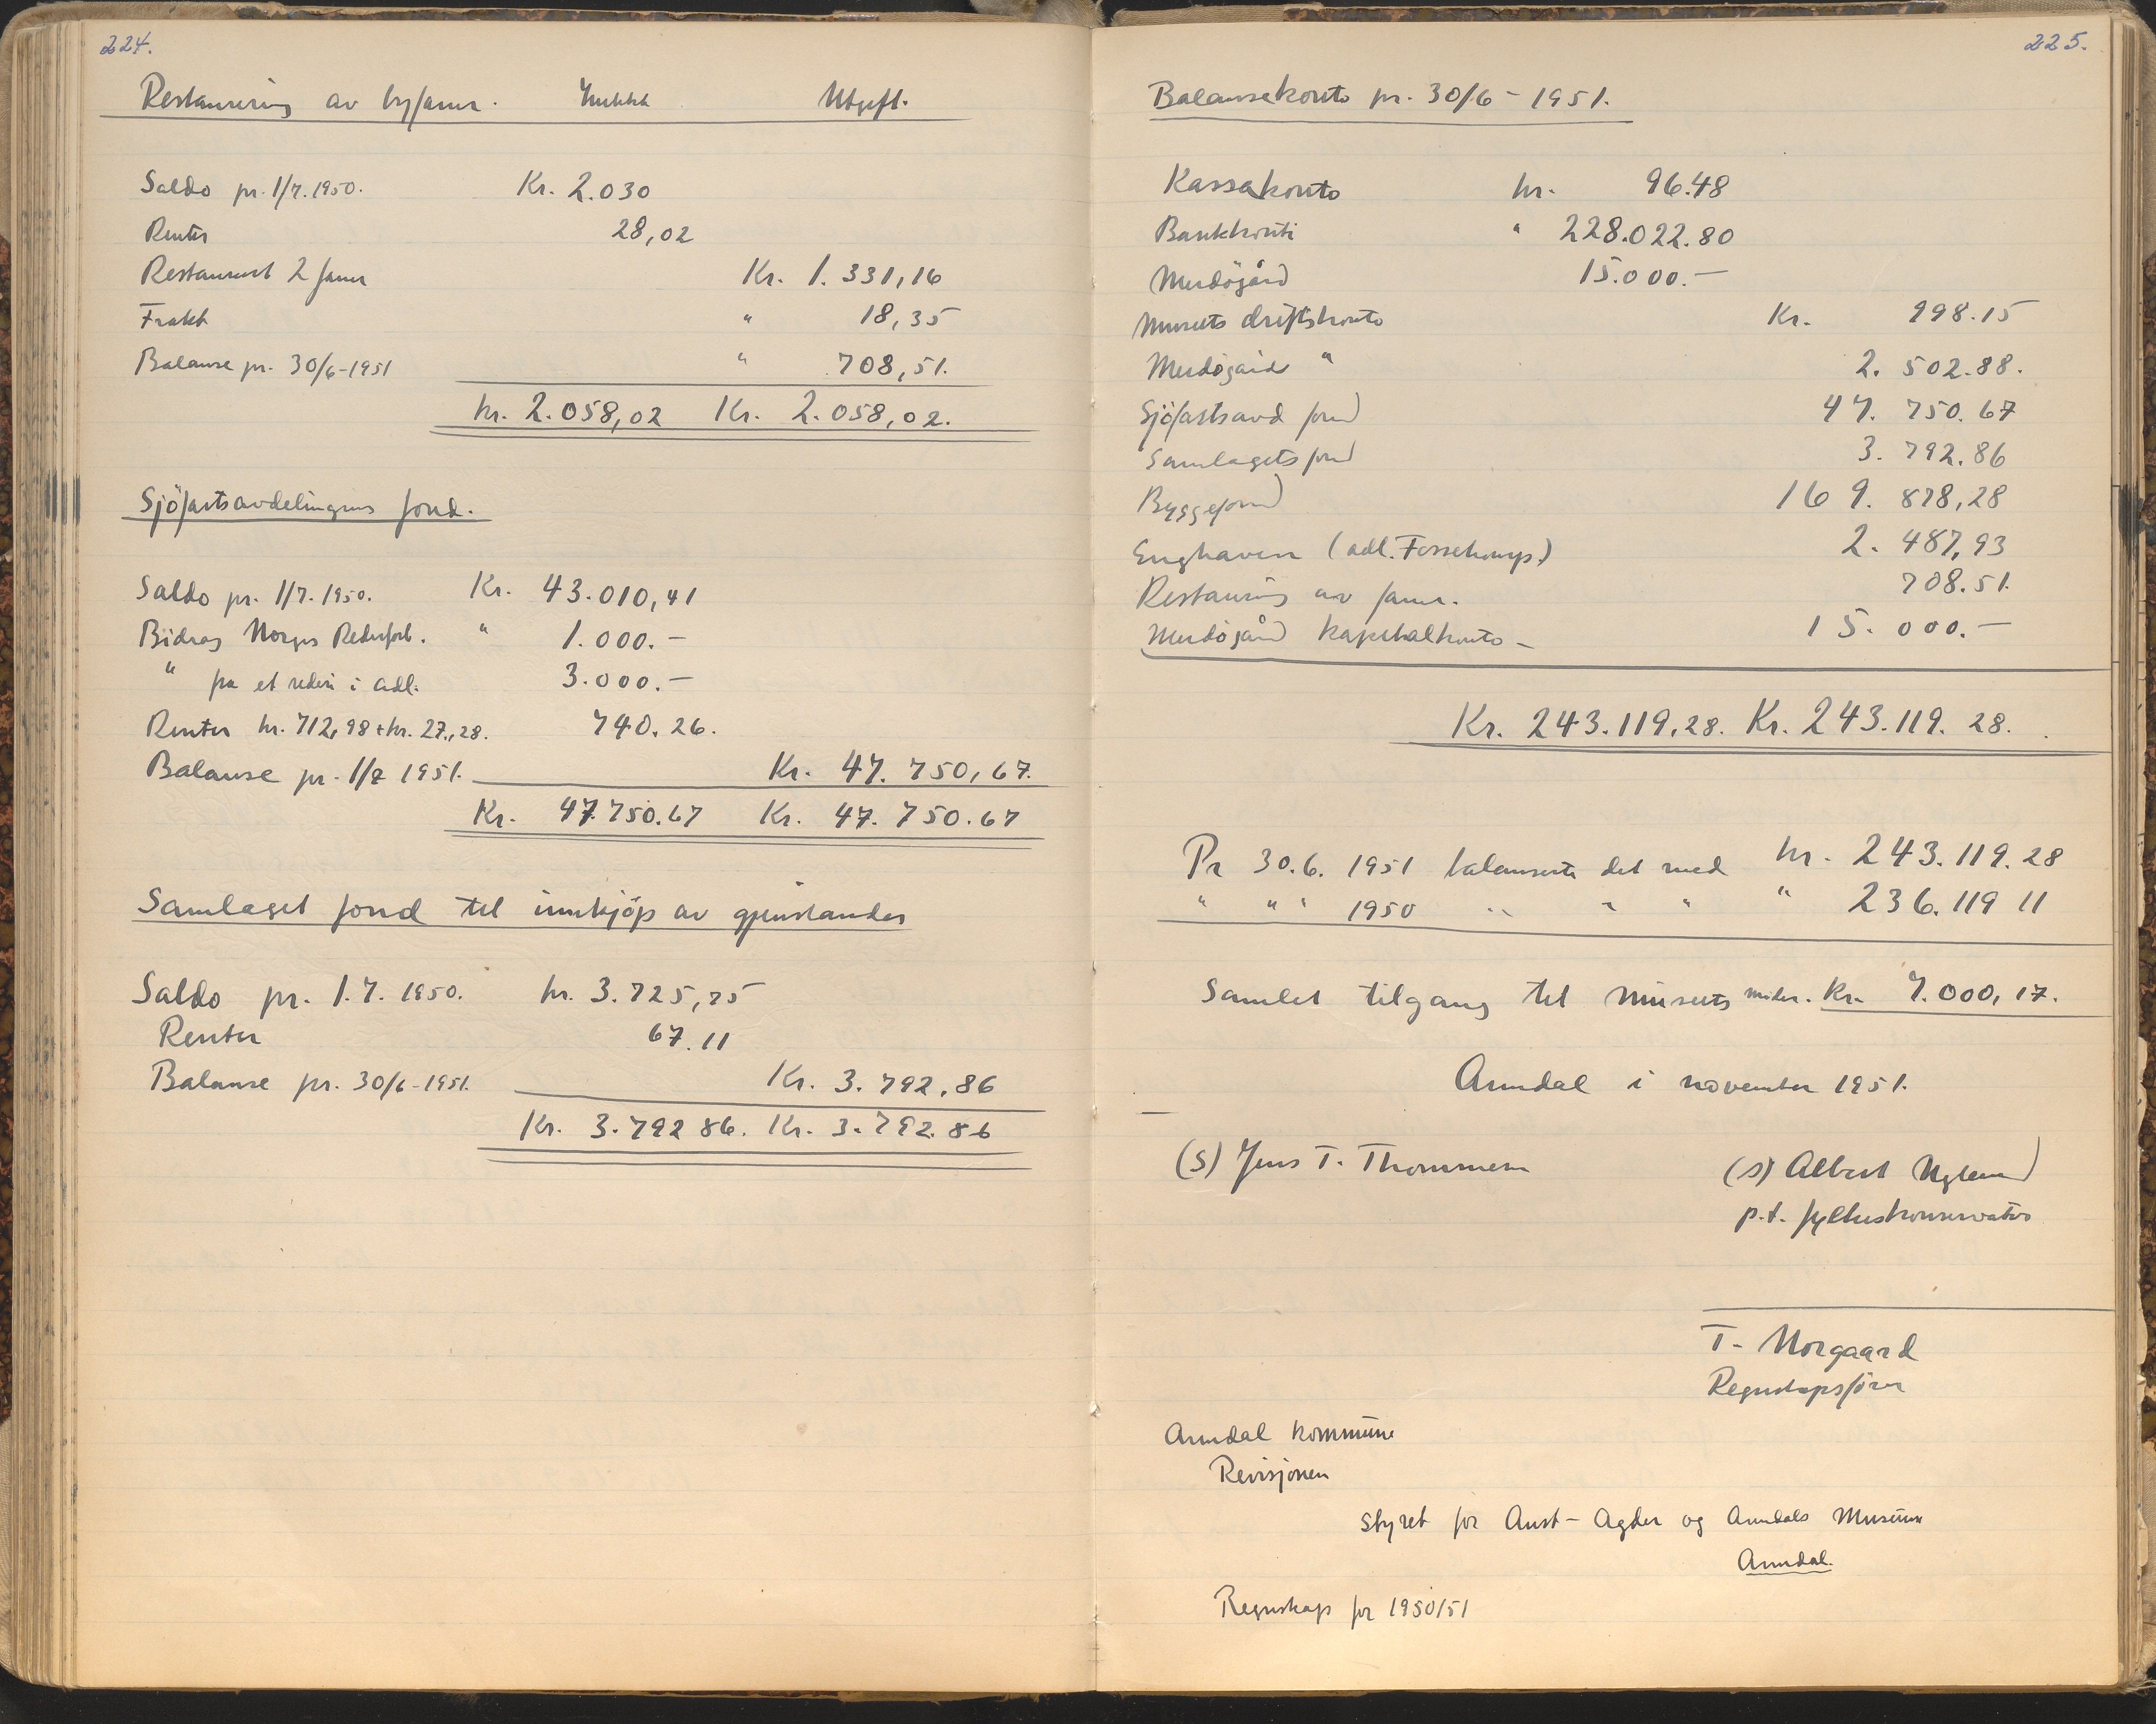 224.
Restaurering av byfaner. Inntekt Utgift.
Saldo pr. 1/7. 1950. Kr. 2.030
Renter 28,02
Restaurert 2 faner Kr. 1.331,16
Frakt " 18,35
Balanse pr. 30/6-1951 " 708,51.
kr. 2.058,02 Kr. 2.058,02.
Sjöfartsavdelingens fond.
Saldo pr. 1/7. 1950. Kr. 43.010,41
Bidrag Norges Rederforb. " 1.000.-
" fra et rederi i Adl. 3.000.-
Renter kr. 712,98 + kr. 27,28. 740.26.
Balanse pr. 1/7 1951. Kr. 47.750,67.
Kr. 47.750.67 Kr. 47.750.67
Samlaget fond til innkjöp av gjenstander
Saldo pr. 1.7. 1950. kr. 3.725,75
Renter 67.11
Balanse pr. 30/6-1951. Kr. 3.792,86
Kr. 3.792 86. Kr. 3.792.86
225.
Balansekonto pr. 30/6-1951.
Kassakonto kr. 96.48
Bankkonti " 228.022.80
Merdögård 15.000.-
Museets driftskonto Kr. 998.15
Merdögårds " 2.502.88.
Sjöfartsavd fond 47.750.67
Samlagets fond 3.792.86
Byggefond 169.878,28
Enghaven (adl. Fossekomp.) 2.487,93
Restaurering av faner. 708.51.
Merdögård kapitalkonto - 15.000.-
Kr. 243.119,28. Kr. 243.119. 28.
Pr 30.6. 1951 balanserte det med kr. 243.119.28
" " " 1950 " " " " 236.119 11
Samlet tilgang til museets midler. Kr. 7.000,17.
Arendal i november 1951.
(s) Jens T. Thommesen
(s) Albert Ugland
p.t. fylkeskonservator
T. Norgaard
Regnskapsförer
Arendal kommune
Revisjonen
Styret for Aust-Agder og Arendals Museum
Arendal.
Regnskap for 1950/51